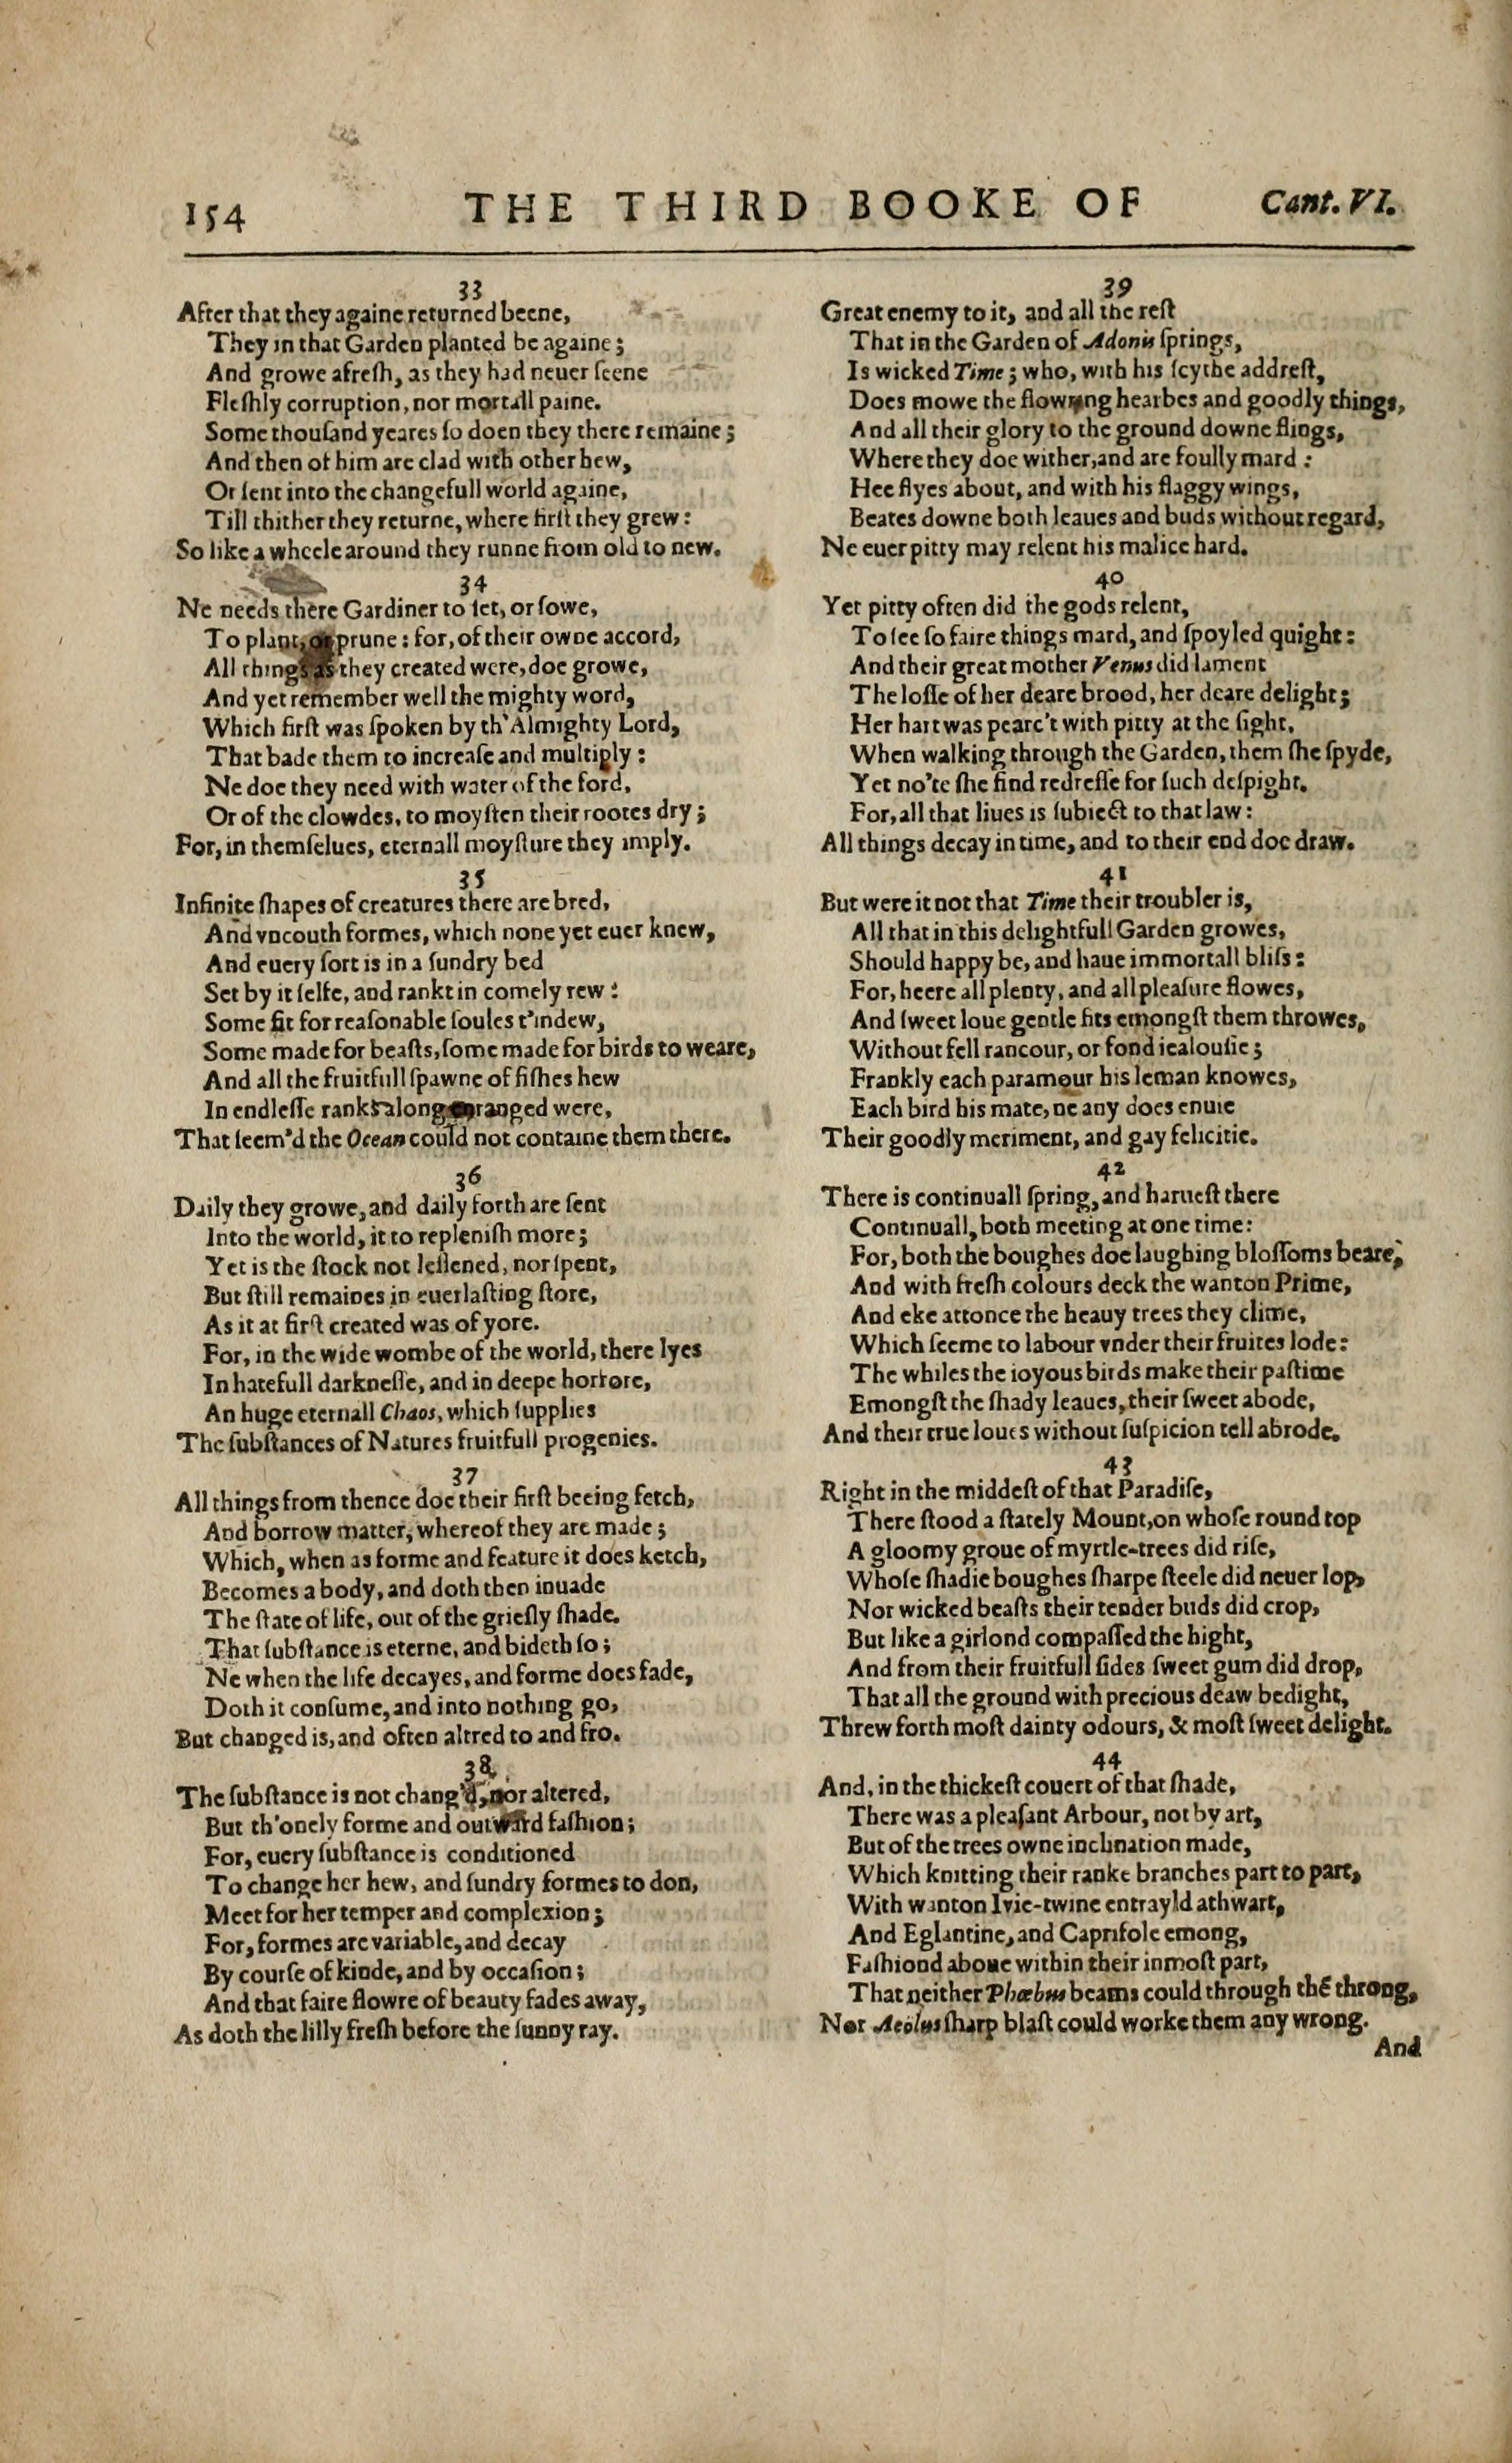 154 THE THIRD BOOKE OF Cant. VI.
33
After that they againe returned beene,
They in that Garden planted be againe;
And growe afreſh, as they had neuer ſeene
Fleſhly corruption, nor mortall paine.
Some thouſand yeares ſo doen they there remaine;
And then of him are clad with other hew,
Or ſent into the changefull world againe,
Till thither they returne, where firſt they grew:
So like a wheele around they runne from old to new.
34
Ne needs there Gardiner to ſet, or ſowe,
To plant, or prune: for, of their owne accord,
All things as they created were, doe growe,
And yet remember well the mighty word,
Which firſt was ſpoken by th'Almighty Lord,
That bade them to increaſe and multiply:
Ne doe they need with water of the ford,
Or of the clowdes, to moyſten their rootes dry;
For, in themſelues, eternall moyſture they imply.
35
Infinite ſhapes of creatures there are bred,
And vncouth formes, which none yet euer knew,
And euery ſort is in a ſundry bed
Set by it ſelfe, and rankt in comely rew:
Some fit for reaſonable ſoules t'indew,
Some made for beaſts, ſome made for birds to weare,
And all the fruitfull ſpawne of fiſhes hew
In endleſſe ranks along enranged were,
That ſeem'd the Ocean could not containe them there.
36
Daily they growe, and daily forth are ſent
Into the world, it to repleniſh more;
Yet is the ſtock not leſſened, nor ſpent,
But ſtill remaines in euerlaſting ſtore,
As it at firſt created was of yore.
For, in the wide wombe of the world, there lyes
In hatefull darkneſſe, and in deepe horrore,
An huge eternall Chaos, which ſupplies
The ſubſtances of Natures fruitfull progenies.
37
All things from thence doe their firſt beeing fetch,
And borrow matter, whereof they are made;
Which, when as forme and feature it does ketch,
Becomes a body, and doth then inuade
The ſtate of life, out of the grieſly ſhade.
That ſubſtance is eterne, and bideth ſo;
Ne when the life decayes, and forme does fade,
Doth it conſume, and into nothing go,
But changed is, and often altred to and fro.
38
The ſubſtance is not chang'd, nor altered,
But th'onely forme and outward faſhion;
For, euery ſubſtance is conditioned
To change her hew, and ſundry formes to don,
Meet for her temper and complexion;
For, formes are variable, and decay
By courſe of kinde, and by occaſion;
And that faire flowre of beauty fades away,
As doth the lilly freſh before the ſunny ray.
39
Great enemy to it, and all the reſt
That in the Garden of Adonis ſprings,
Is wicked Time; who, with his ſcythe addreſt,
Does mowe the flowring hearbes and goodly things,
And all their glory to the ground downe flings,
Where they doe wither, and are foully mard:
Hee flyes about, and with his flaggy wings,
Beates downe both leaues and buds without regard,
Ne euer pitty may relent his malice hard.
40
Yet pitty often did the gods relent,
To ſee ſo faire things mard, and ſpoyled quight:
And their great mother Venus did lament
The loſſe of her deare brood, her deare delight;
Her hart was pearc't with pitty at the ſight,
When walking through the Garden, them ſhe ſpyde,
Yet no'te ſhe find redreſſe for ſuch deſpight.
For, all that liues is ſubiect to that law:
All things decay in time, and to their end doe draw.
41
But were it not that Time their troubler is,
All that in this delightfull Garden growes,
Should happy be, and haue immortall bliſs:
For, heere all plenty, and all pleaſure flowes,
And ſweet loue gentle fits emongſt them throwes,
Without fell rancour, or fond iealouſie;
Frankly each paramour his leman knowes,
Each bird his mate, ne any does enuie
Their goodly meriment, and gay felicitie.
42
There is continuall ſpring, and harueſt there
Continuall, both meeting at one time:
For, both the boughes doe laughing bloſſoms beare,
And with freſh colours deck the wanton Prime,
And eke attonce the heauy trees they clime,
Which ſeeme to labour vnder their fruites lode:
The whiles the ioyous birds make their paſtime
Emongſt the ſhady leaues, their ſweet abode,
And their true loues without ſuſpicion tell abrode.
43
Right in the middeſt of that Paradiſe,
There ſtood a ſtately Mount, on whoſe round top
A gloomy groue of myrtle-trees did riſe,
Whoſe ſhadie boughes ſharpe ſteele did neuer lop,
Nor wicked beaſts their tender buds did crop,
But like a girlond compaſſed the hight,
And from their fruitfull ſides ſweet gum did drop,
That all the ground with precious deaw bedight,
Threw forth moſt dainty odours, & moſt ſweet delight.
44
And, in the thickeſt couert of that ſhade,
There was a pleaſant Arbour, not by art,
But of the trees owne inclination made,
Which knitting their ranke branches part to part,
With wanton Ivie-twine entrayld athwart,
And Eglantine, and Caprifole emong,
Faſhiond aboue within their inmoſt part,
That neither Phœbus beams could through thẽ throng,
Nor Aeolus ſharp blaſt could worke them any wrong.
And